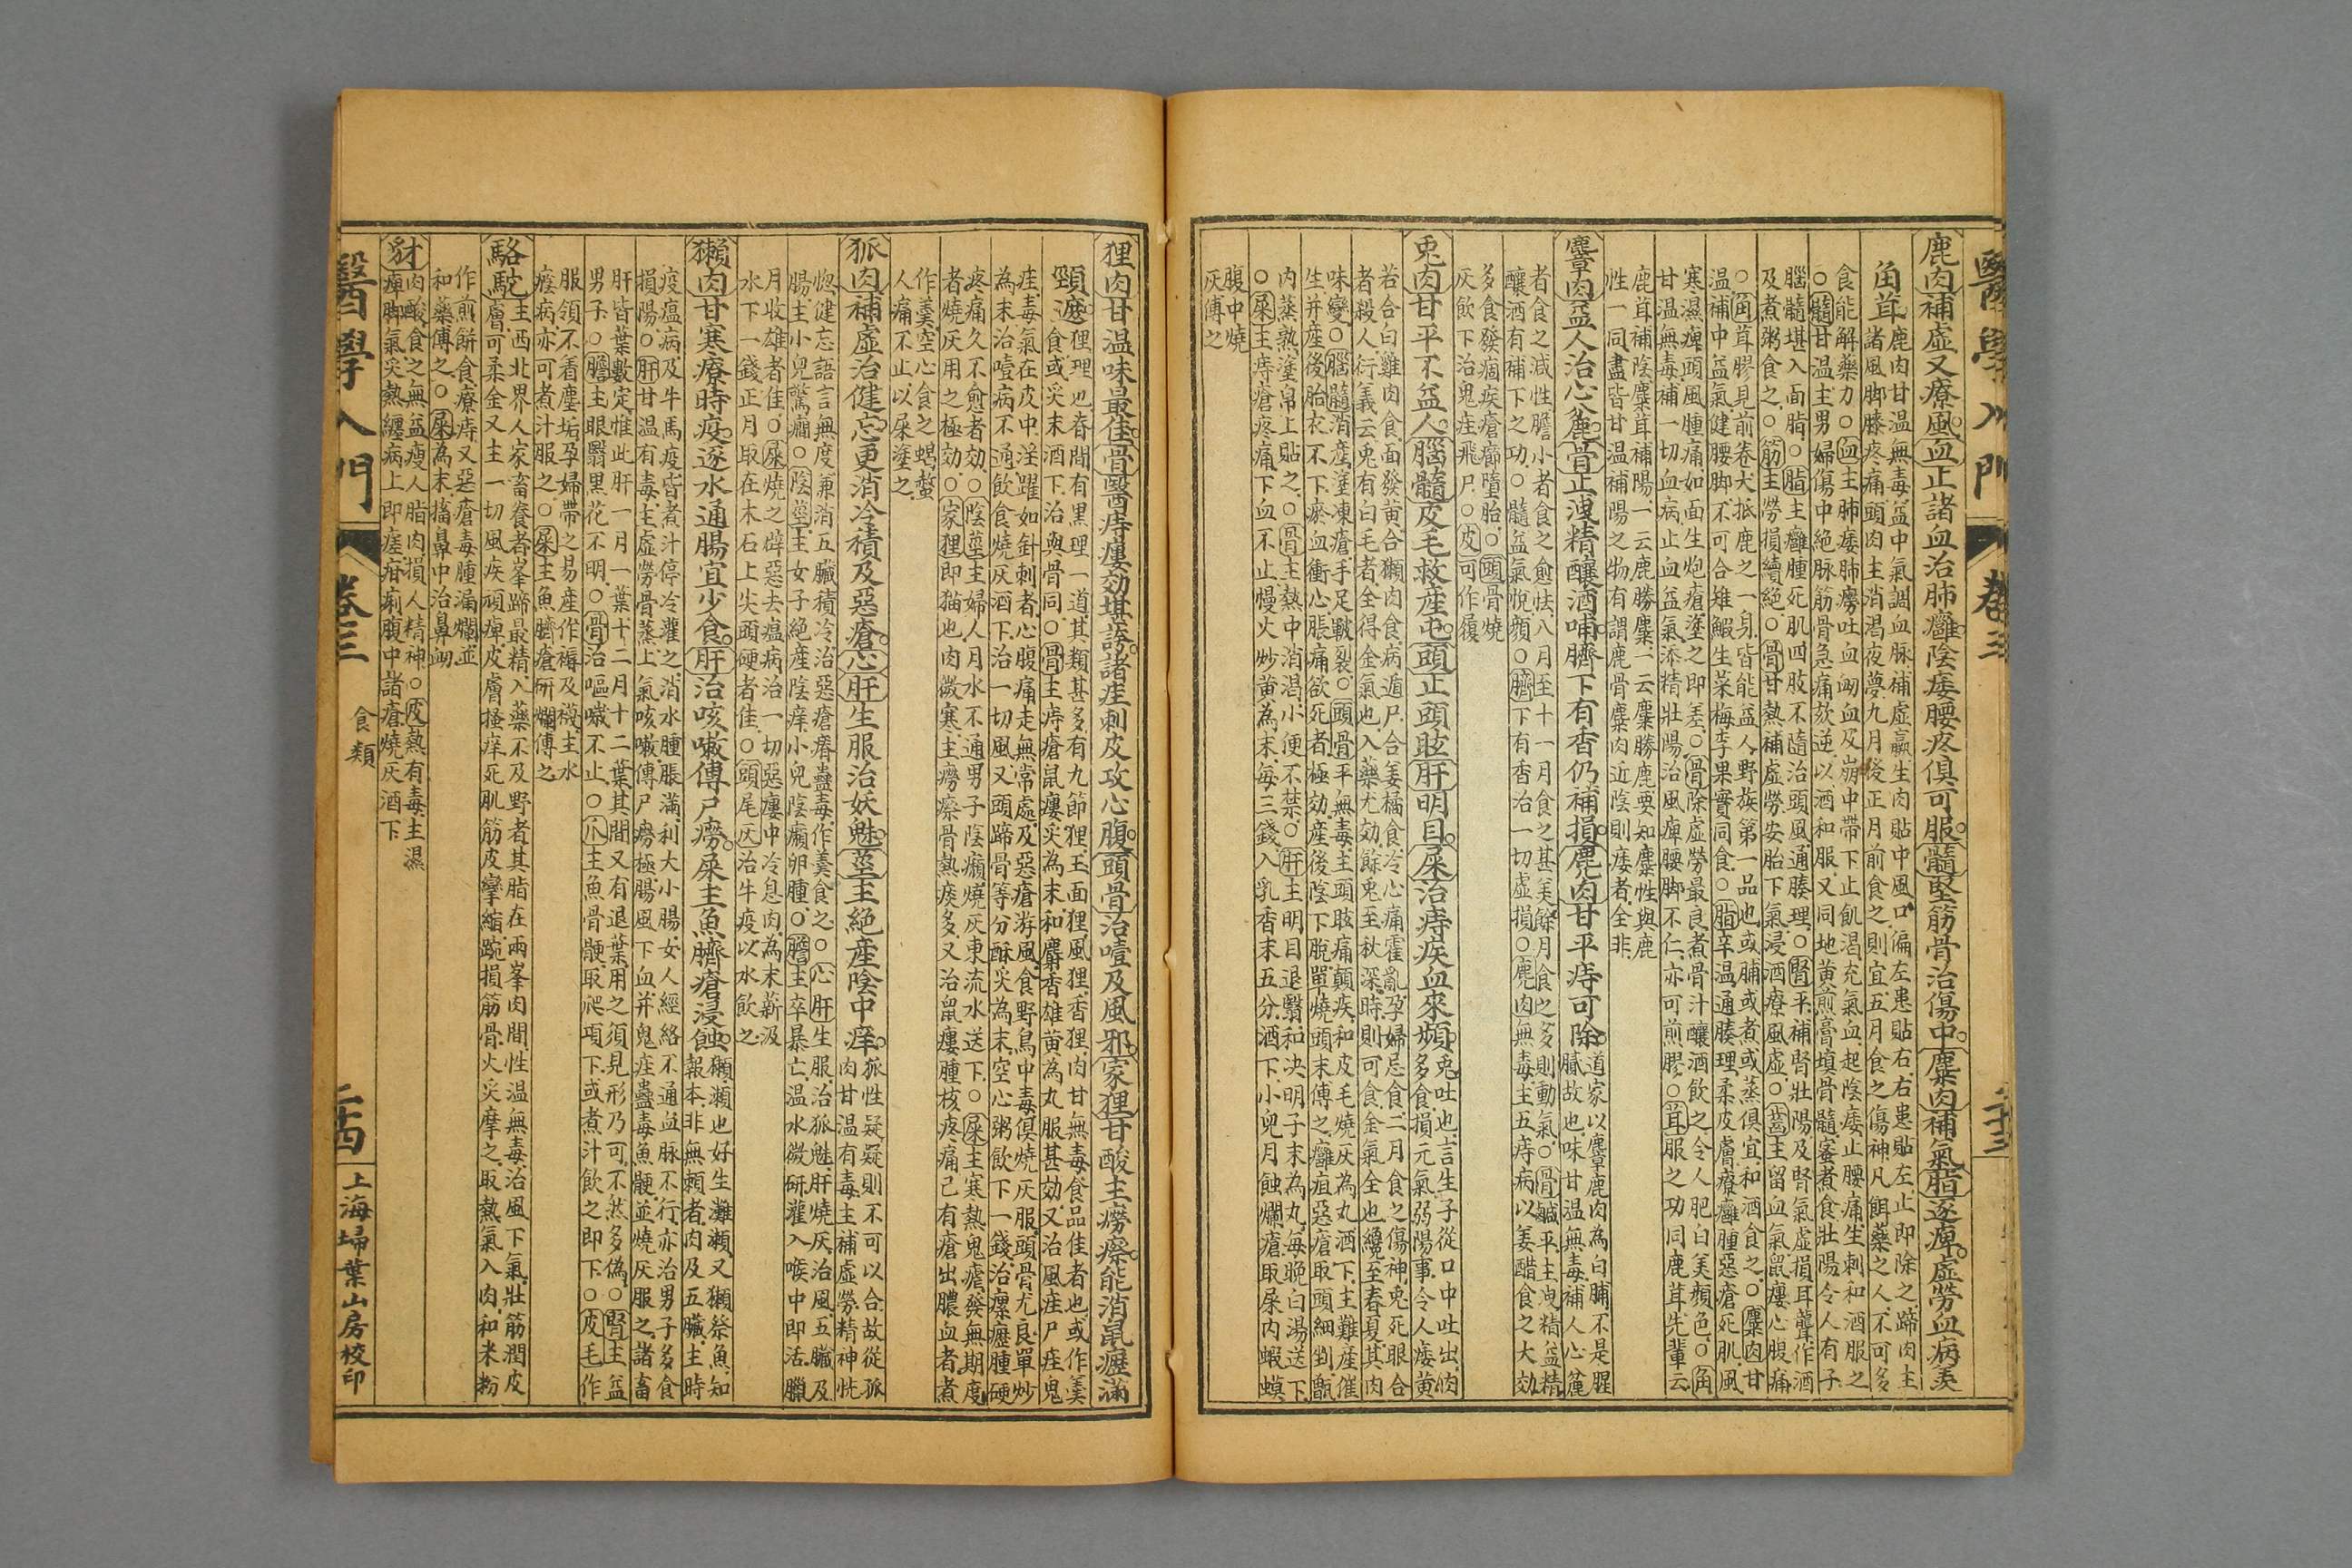 醫學入門 卷三 二十三
鹿肉補虛又療風血正諸血治肺癰陰痿腰疼俱可服髓堅筋骨治傷中麋肉補氣脂逐痺虛勞血病羨
角茸鹿肉甘溫無毒益中氣調血脉補虛羸生肉貼中風口偏左患貼右右患貼左止即除之蹄肉主
諸風脚膝疼痛頭肉主消渴夜夢九月後正月前食之則宜五月食之傷神凡餌藥之人不可多
食能解藥力○血主肺痿肺癆吐血衂血及崩中帶下止飢渴充氣血起陰痿止腰痛生刺和酒服之
○髓甘溫主男婦傷中絕脉筋骨急痛欬逆以酒和服又同地黃煎膏填骨髓蜜煮食壯陽令人有子
腦髓堪入面脂○脂主癰腫死肌四肢不隨治頭風通腠理○腎平補腎壯陽及腎氣虛損耳聾作酒
及煮粥食之○筋主勞損續絕○骨甘熱補虛勞安胎下氣浸酒療風虛○齒主留血氣鼠瘻心腹痛
○角茸膠見前卷大抵鹿之一身皆能益人野族第一品也或脯或煮或蒸俱宜和酒食之○麋肉甘
溫補中益氣健腰脚不可合雉鰕生菜梅李果實同食○脂辛溫通腠理柔皮膚療癰腫惡瘡死肌風
寒濕痺頭風腫痛如面生炮瘡塗之即差○骨除虛勞最良煮骨汁釀酒飲之令人肥白美顏色○角
甘溫無毒補一切血病止血益氣添精壯陽治風痺腰脚不仁亦可煎膠○茸服之功同鹿茸先輩云
鹿茸補陰麋茸補陽一云鹿勝麋一云麋勝鹿要知麋性與鹿
性一同盡皆甘溫補陽之物有謂鹿骨麋肉近陰則痿者全非
麞肉益人治心麄骨止洩精釀酒哺臍下有香仍補損麂肉甘平痔可除道家以麞鹿肉為白脯不是腥
膩故也味甘溫無毒補人心麄
者食之減性膽小者食之愈怯八月至十一月食之甚美餘月食之多則動氣○骨鹹平主洩精益精
釀酒有補下之功○髓益氣悅顏○臍下有香治一切虛損○麂肉無毒主五痔病以姜醋食之大効
多食發痼疾瘡癤墮胎○頭骨燒
灰飲下治鬼疰飛尸○皮可作履
兎肉甘平不益人腦髓皮毛救產屯頭止頭眩肝明目屎治痔疾血來頻兎吐也言生子從口中吐出肉
多食損元氣弱陽事令人痿黃
若合白雞肉食面發黃合獺肉食病遁尸合姜橘食冷心痛霍亂孕婦忌食二月食之傷神兎死眼合
者殺人衍義云兎有白毛者全得金氣也入藥尤効餘兎至秋深時則可食金氣全也纔至春夏其肉
味變○腦髓消產塗凍瘡手足皸裂○頭骨平無毒主頭眩痛顛疾和皮毛燒灰為丸酒下主難產催
生并產後胎衣不下瘀血衝心脹痛欲死者極効產後陰下脫單燒頭末傅之癰疽惡瘡取頭細剉甑
內蒸熟塗帛上貼之○骨主熱中消渴小便不禁○肝主明目退翳和决明子末為丸每晚白湯送下
○屎主痔瘡疼痛下血不止慢火炒黃為末每三錢入乳香末五分酒下小兒月蝕爛瘡取屎內蝦蟆
腹中燒
灰傅之
狸肉甘溫味最佳骨醫痔瘻効堪誇諸疰刺皮攻心腹頭骨治噎及風邪家狸甘酸主癆瘵能消鼠瘻滿
頸遮狸理也春間有黑理一道其類甚多有九節狸玉面狸風狸香狸肉甘無毒食品佳者也或作羹
食或炙末酒下治與骨同○骨主痔瘡鼠瘻炙為末和麝香雄黃為丸服甚効又治風疰尸疰鬼
疰毒氣在皮中淫躍如針刺者心腹痛走無常處及惡瘡游風食野鳥中毒俱燒灰服頭骨尤良單炒
為末治噎病不通飲食燒灰酒下治一切風又頭蹄骨等分酥炙為末空心粥飲下一錢治瘰癧腫硬
疼痛久不愈者効○陰莖主婦人月水不通男子陰癩燒灰東流水送下○屎主寒熱鬼瘧發無期度
者燒灰用之極効○家狸即猫也肉微寒主癆瘵骨熱痰多又治鼠瘻腫核疼痛已有瘡出膿血者煮
作羹空心食之蝎螫
人痛不止以屎塗之
狐肉補虛治健忘更消冷積及惡瘡心肝生服治妖魅莖主絕產陰中痒狐性疑疑則不可以合故從狐
肉甘溫有毒主補虛勞精神恍
惚健忘語言無度兼消五臟積冷治惡瘡瘡蠱毒作羹食之○心肝生服治狐魅肝燒灰治風五臟及
腸主小兒驚癎○陰莖主女子絕產陰痒小兒陰癩卵腫○膽主卒暴亡溫水微研灌入喉中即活臘
月收雄者佳○屎燒之辟惡去瘟病治一切惡瘻中冷息肉為末蘄汲
水下一錢正月取在木石上尖頭硬者佳○頭尾灰治牛疫以水飲之
獺肉甘寒療時疫逐水通腸宜少食肝治咳嗽傅尸癆屎主魚臍瘡浸蝕獺瀨也好生灘瀨又獺祭魚知
報本非無賴者肉及五臟主時
疫瘟病及牛馬疫皆煮汁停冷灌之消水腫脹滿利大小腸女人經絡不通血脉不行亦治男子多食
損陽○肝甘溫有毒主虛勞骨蒸上氣咳嗽傅尸癆極腸風下血并鬼疰蠱毒魚骾並燒灰服之諸畜
肝皆葉數定惟此肝一月一葉十二月十二葉其間又有退葉用之須見形乃可不然多偽○腎主益
男子○膽主眼翳黑花不明○骨治嘔噦不止○爪主魚骨骾取爬項下或煮汁飲之即下○皮毛作
服領不着塵垢孕婦帶之易產作褥及襪主水
癊病亦可煮汁服之○屎主魚臍瘡研爛傅之
駱駝主西北界人家畜養者峯蹄最精入藥不及野者其脂在兩峯肉間性溫無毒治風下氣壯筋潤皮
膚可柔金又主一切風疾頑痺皮膚搔痒死肌筋皮攣縮踠損筋骨火炙摩之取熱氣入肉和米粉
作煎餅食療痔又惡瘡毒腫漏爛並
和藥傅之○屎為末搐鼻中治鼻衂
豺肉酸食之無益瘦人脂肉損人精神○皮熱有毒主濕
痺脚氣炙熱纏病上即瘥疳痢腹中諸瘡燒灰酒下
醫學入門 卷三 食類 二十四 上海埽葉山房校印